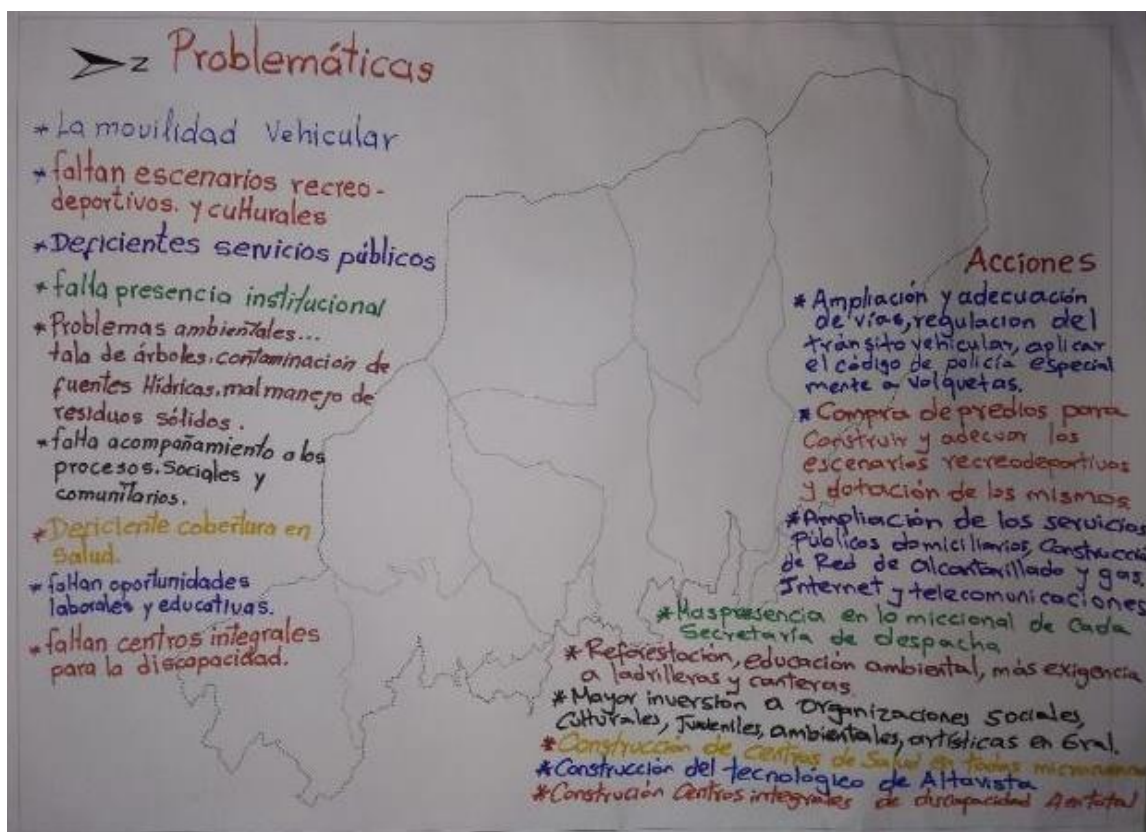 Z
Problemáticas
* La movilidad vehicular
* faltan escenarios recreo-
deportivos. y culturales
* Deficientes servicios públicos
* falta presencia institucional
* Problemas ambientales...
tala de árboles, contaminación de
fuentes Hídricas, mal manejo de
residuos sólidos.
* falta acompañamiento a los
procesos. Sociales y
comunitarios.
* Deficiente cobertura en
Salud.
* faltan oportunidades
laborales y educativas.
* faltan centros integrales
para la discapacidad.
Acciones
* Ampliación y adecuación
de vías, regulacion del
tránsito vehicular, aplicar
el código de policía especial
mente a volquetas.
* Compra de predios para
Construir y adecuar los
escenarios recreodeportivos
y dotación de los mismos
* Ampliación de los servicios
Públicos domiciliarios, Construcció
de Red de alcantarillado y gas
Internet y telecomunicaciones
* Mas presencia en lo miccional de Cada
Secretaría de despacha
* Reforestación, educación ambiental, más exigencia
a ladrilleras y canteras
* Mayor inversión a organizaciones sociales,
Culturales, Juveniles, ambientales, artísticas en Gral.
* Construcción de centros de Salud en todas
* Construcción del tecnológico de Altavista
* Construción Centros integrales de discapacidad